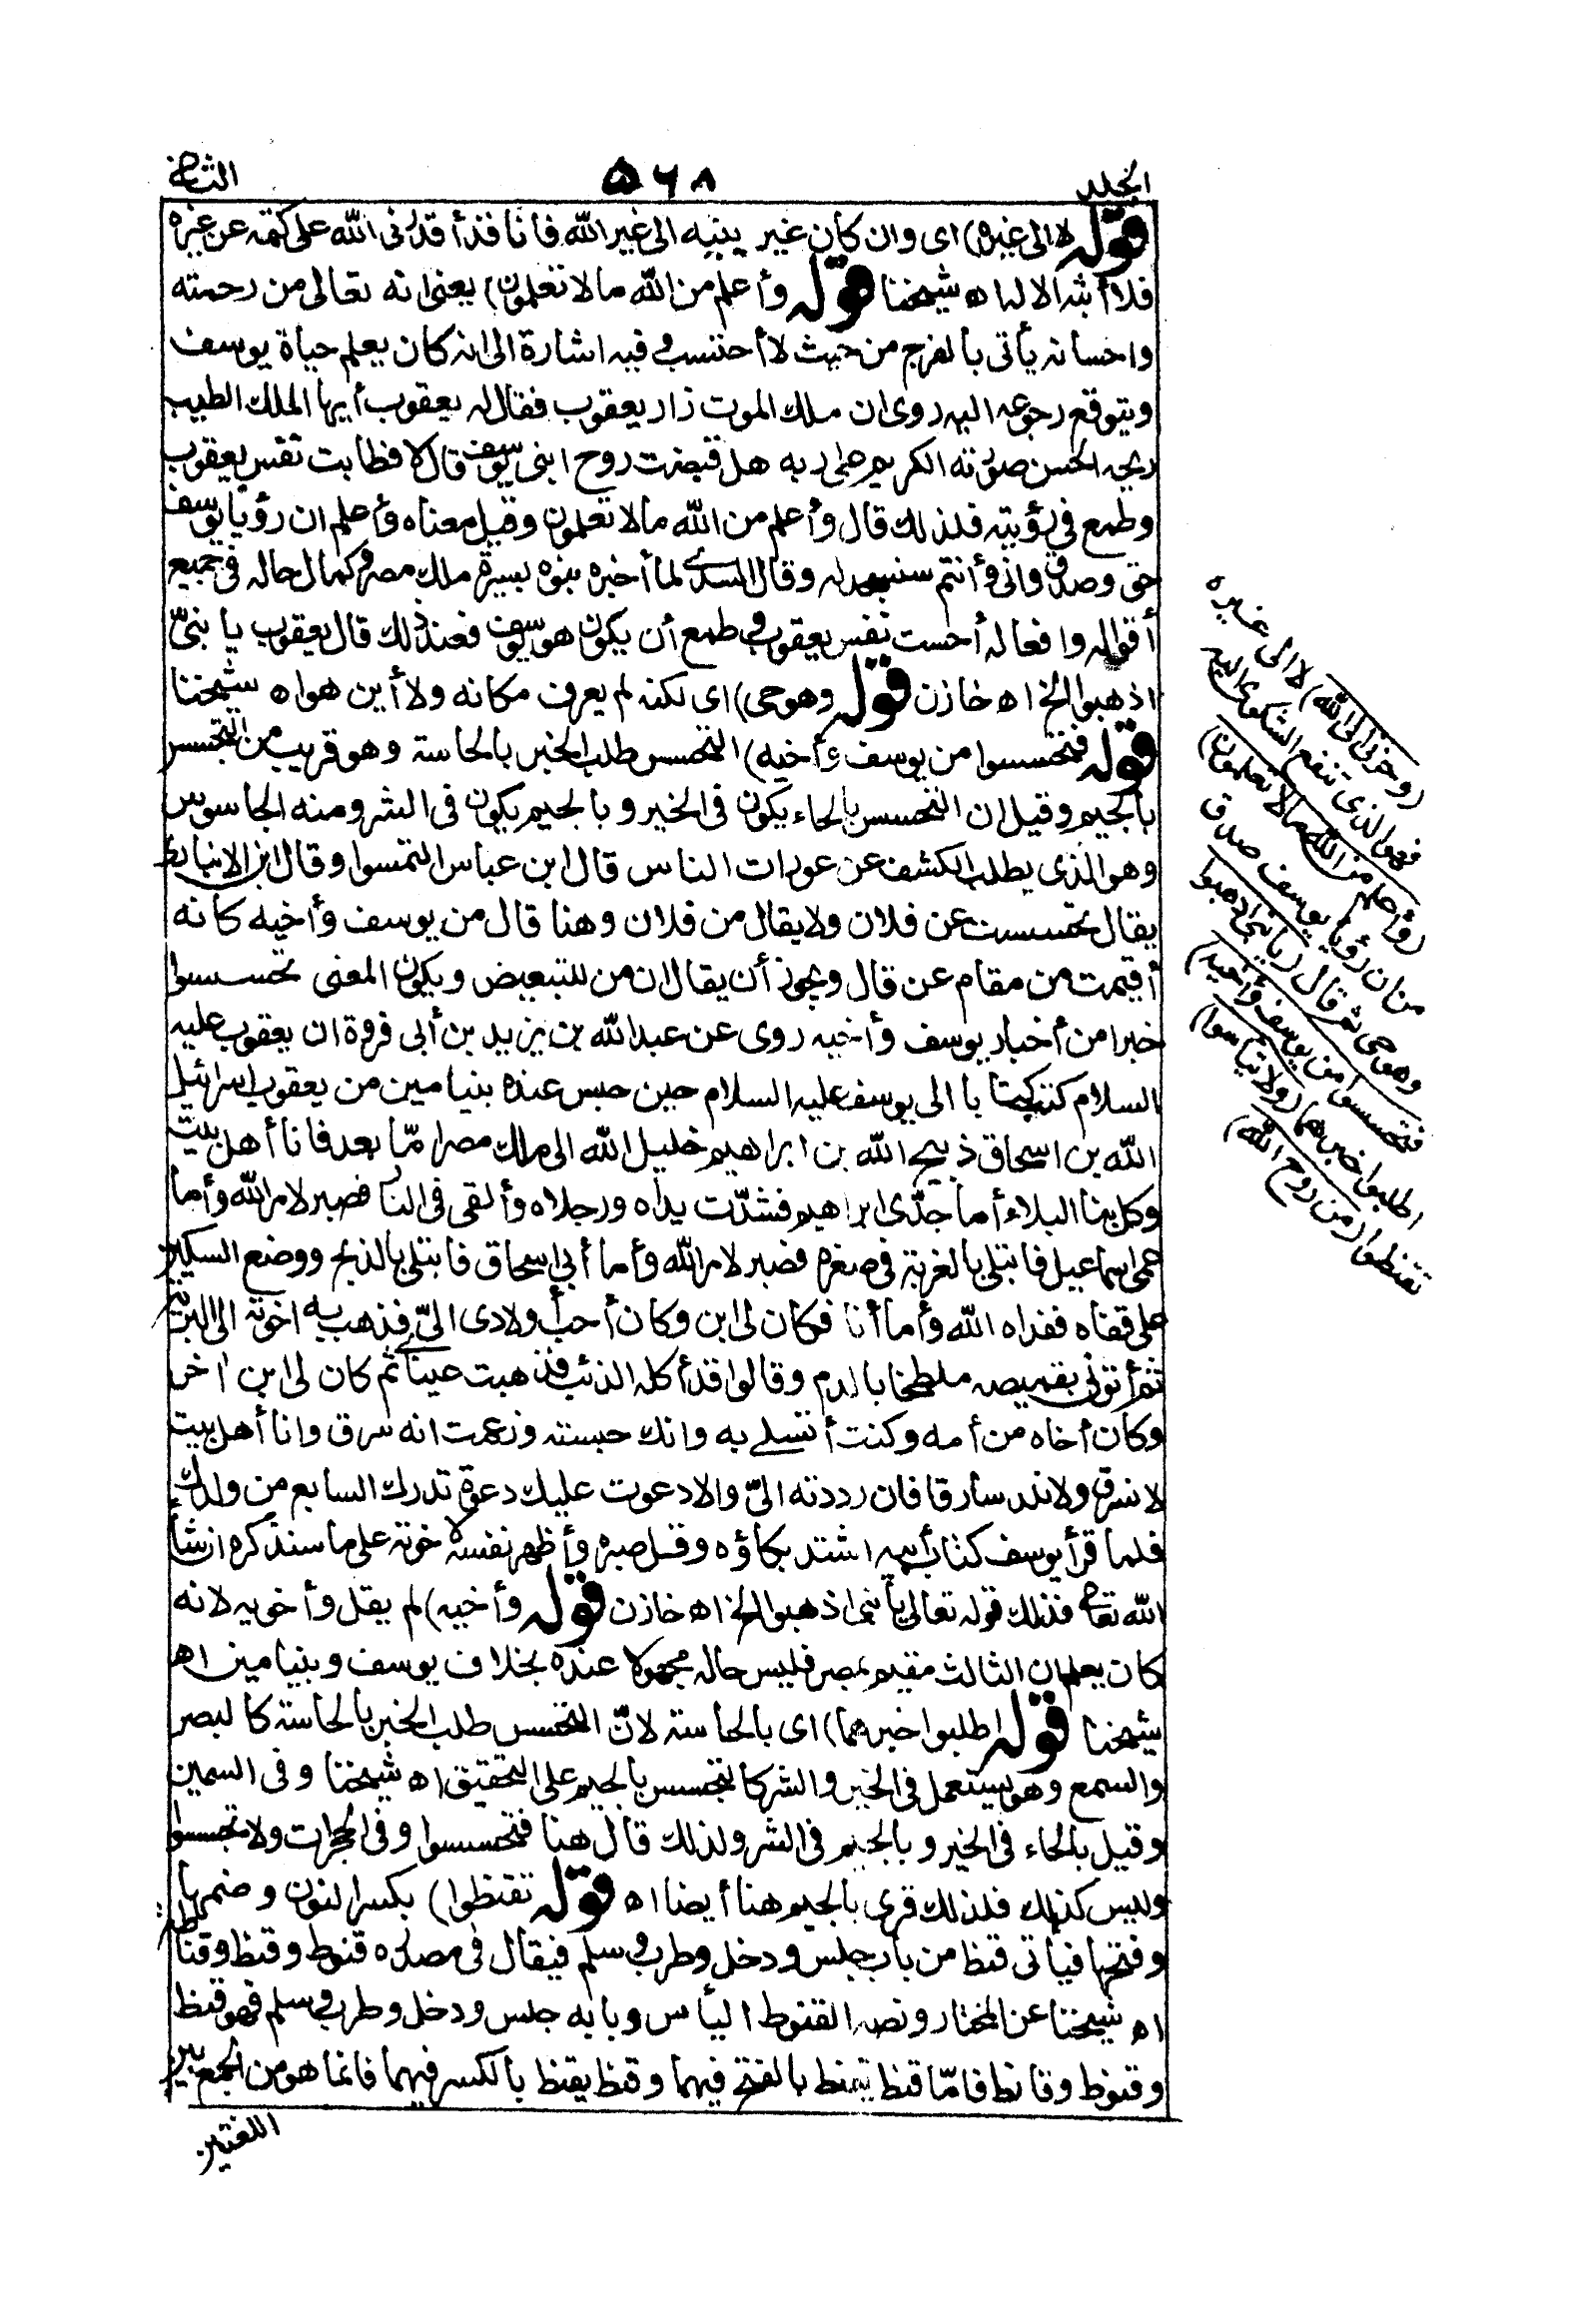 الجلد ۵۶۸ الثانی
قوله لا الى غيره) اى وان كان غير ينبه الى غير الله فانا فذأ قدرنى الله على كتمه عن غيره
فلا أبثه الا له اه شيخنا قوله وأعلم من الله مالا تعلمون) يعنى انه تعالى من رحمته
واحسانه يأتى بالفرج من حيث لا أحتسب وفيه اشارة الى انه كان يعلم حياة يوسف
ويتوقع رجوعه اليه روى ان ملك الموت زار يعقوب فقال له يعقوب أيها الملك الطيب
ريحه الحسن صورته الكريم على ربه هل قبضت روح ابنى يوسف قال لا فطابت نفس يعقوب
وطمع في رؤيته فلذلك قال وأعلم من الله مالا تعلمون وقيل معناه وأعلم ان رؤيا يوسف
حق وصدق وانى وأنتم سنسجد له وقال السدى لما أخبره بنوه بسيرة ملك مصر وكمال حاله فى جميع
أقواله وافعاله أحست نفس يعقوب وطمع أن يكون هو يوسف فعند ذلك قال يعقوب يا بنىّ
اذهبوا الخ اه خازن قوله وهو حى) اى لكنه لم يعرف مكانه ولا أين هو اه شيخنا
قوله فتحسسوا من يوسف وأخيه) التحسس طلب الخبر بالحاسة وهو قريب من التجسس
بالجيم وقيل ان التحسس بالحاء يكون فى الخير وبالجيم يكون فى الشر ومنه الجاسوس
وهو الذى يطلب الكشف عن عورات الناس قال ابن عباس التمسوا وقال ابن الانبارى
يقال تحسست عن فلان ولا يقال من فلان وهنا قال من يوسف وأخيه كانه
أقيمت من مقام عن قال ويجوز أن يقال ان من للتبعيض ويكون المعنى تحسسوا
خبرا من أخبار يوسف وأخيه روى عن عبد الله بن يزيد بن أبى فروة ان يعقوب عليه
السلام كتب كتابا الى يوسف عليه السلام حين حبس عنده بنيامين من يعقوب اسرائيل
الله بن اسحاق ذبيح الله بن ابراهيم خليل الله الى ملك مصر امّا بعد فانا أهل بيت
وكل بنا البلاء أما جدّى ابراهيم فشدّت يداه ورجلاه وألقى فى النار فصبر لامر الله وأما
عمى اسماعيل فابتلى بالغربة فى صغره فصبر لامر الله وأما أبى اسحاق فابتلى بالذبح ووضع السكين
على قفاه ففداه الله وأما أنا فكان لى ابن وكان أحب أولادى الىّ فذهب به اخوته الى البرية
ثم أتونى بقميصه ملطخا بالدم وقالوا قد أكله الذئب فذهبت عيناى ثم كان لى ابن اخر
وكان أخاه من أمه وكنت أتسلى به وانك حبسته وزعمت انه سرق وانا أهل بيت
لا نسرق ولا نلد سارقا فان رددته الىّ والا دعوت عليك دعوة تدرك السابع من ولدك
فلما قرأ يوسف كتاب أبيه اشتد بكاؤه وقل صبره وأظهر نفسه لاخوته على ما سنذكره ان شاء
الله تعالى فذلك قوله تعالى يا بنى اذهبوا الخ اه خازن قوله وأخيه) لم يقل وأخويه لانه
كان يعلم ان الثالث مقيم بمصر فليس حاله مجهولا عنده بخلاف يوسف وبنيامين اه
شيخنا قوله اطلبوا خبرهما) اى بالحاسة لانّ التحسس طلب الخبر بالحاسة كالبصر
والسمع وهو يستعمل فى الخير والشر كالتجسس بالجيم على التحقيق اه شيخنا وفى السمين
وقيل بالحاء فى الخير وبالجيم فى الشر ولذلك قال هنا فتحسسوا وفى الحجرات ولا تجسسوا
وليس كذلك فلذلك قرى بالجيم هنا أيضا اه قوله تقنطوا) بكسر النون وضمها
وفتحها فيأتى قنط من باب جلس ودخل وطرب وسلم فيقال فى مصدره قنوط وقنط وقناطة
اه شيخنا عن المختار ونصه القنوط اليأس وبابه جلس ودخل وطرب وسلم فهو قنط
وقنوط وقانط فامّا قنط يقنط بالفتح فيهما وقنط يقنط بالكسر فيهما فانما هو من الجمع بين
اللغتين
(وحزنى الى الله) لا الى غيره
فهو الذى تنفع الشكوى اليه
(وأعلم من الله ما لا تعلمون)
من ان رؤيا يوسف صدق
وهو حى ثم قال (يا بنى اذهبوا
فتحسسوا من يوسف وأخيه)
اطلبوا خبرهما (ولا تيأسوا)
تقنطوا (من روح الله)